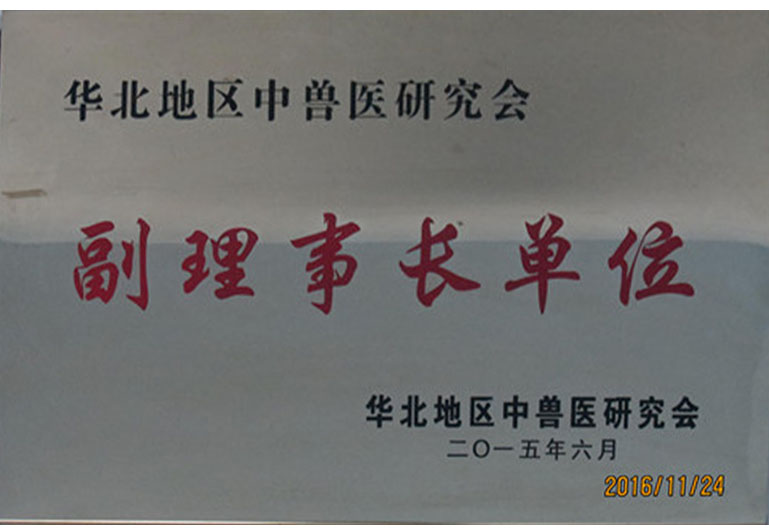 华北地区中兽医研究会
副理事长单位
华北地区中兽医研究会
二〇一五年六月
2016/11/24